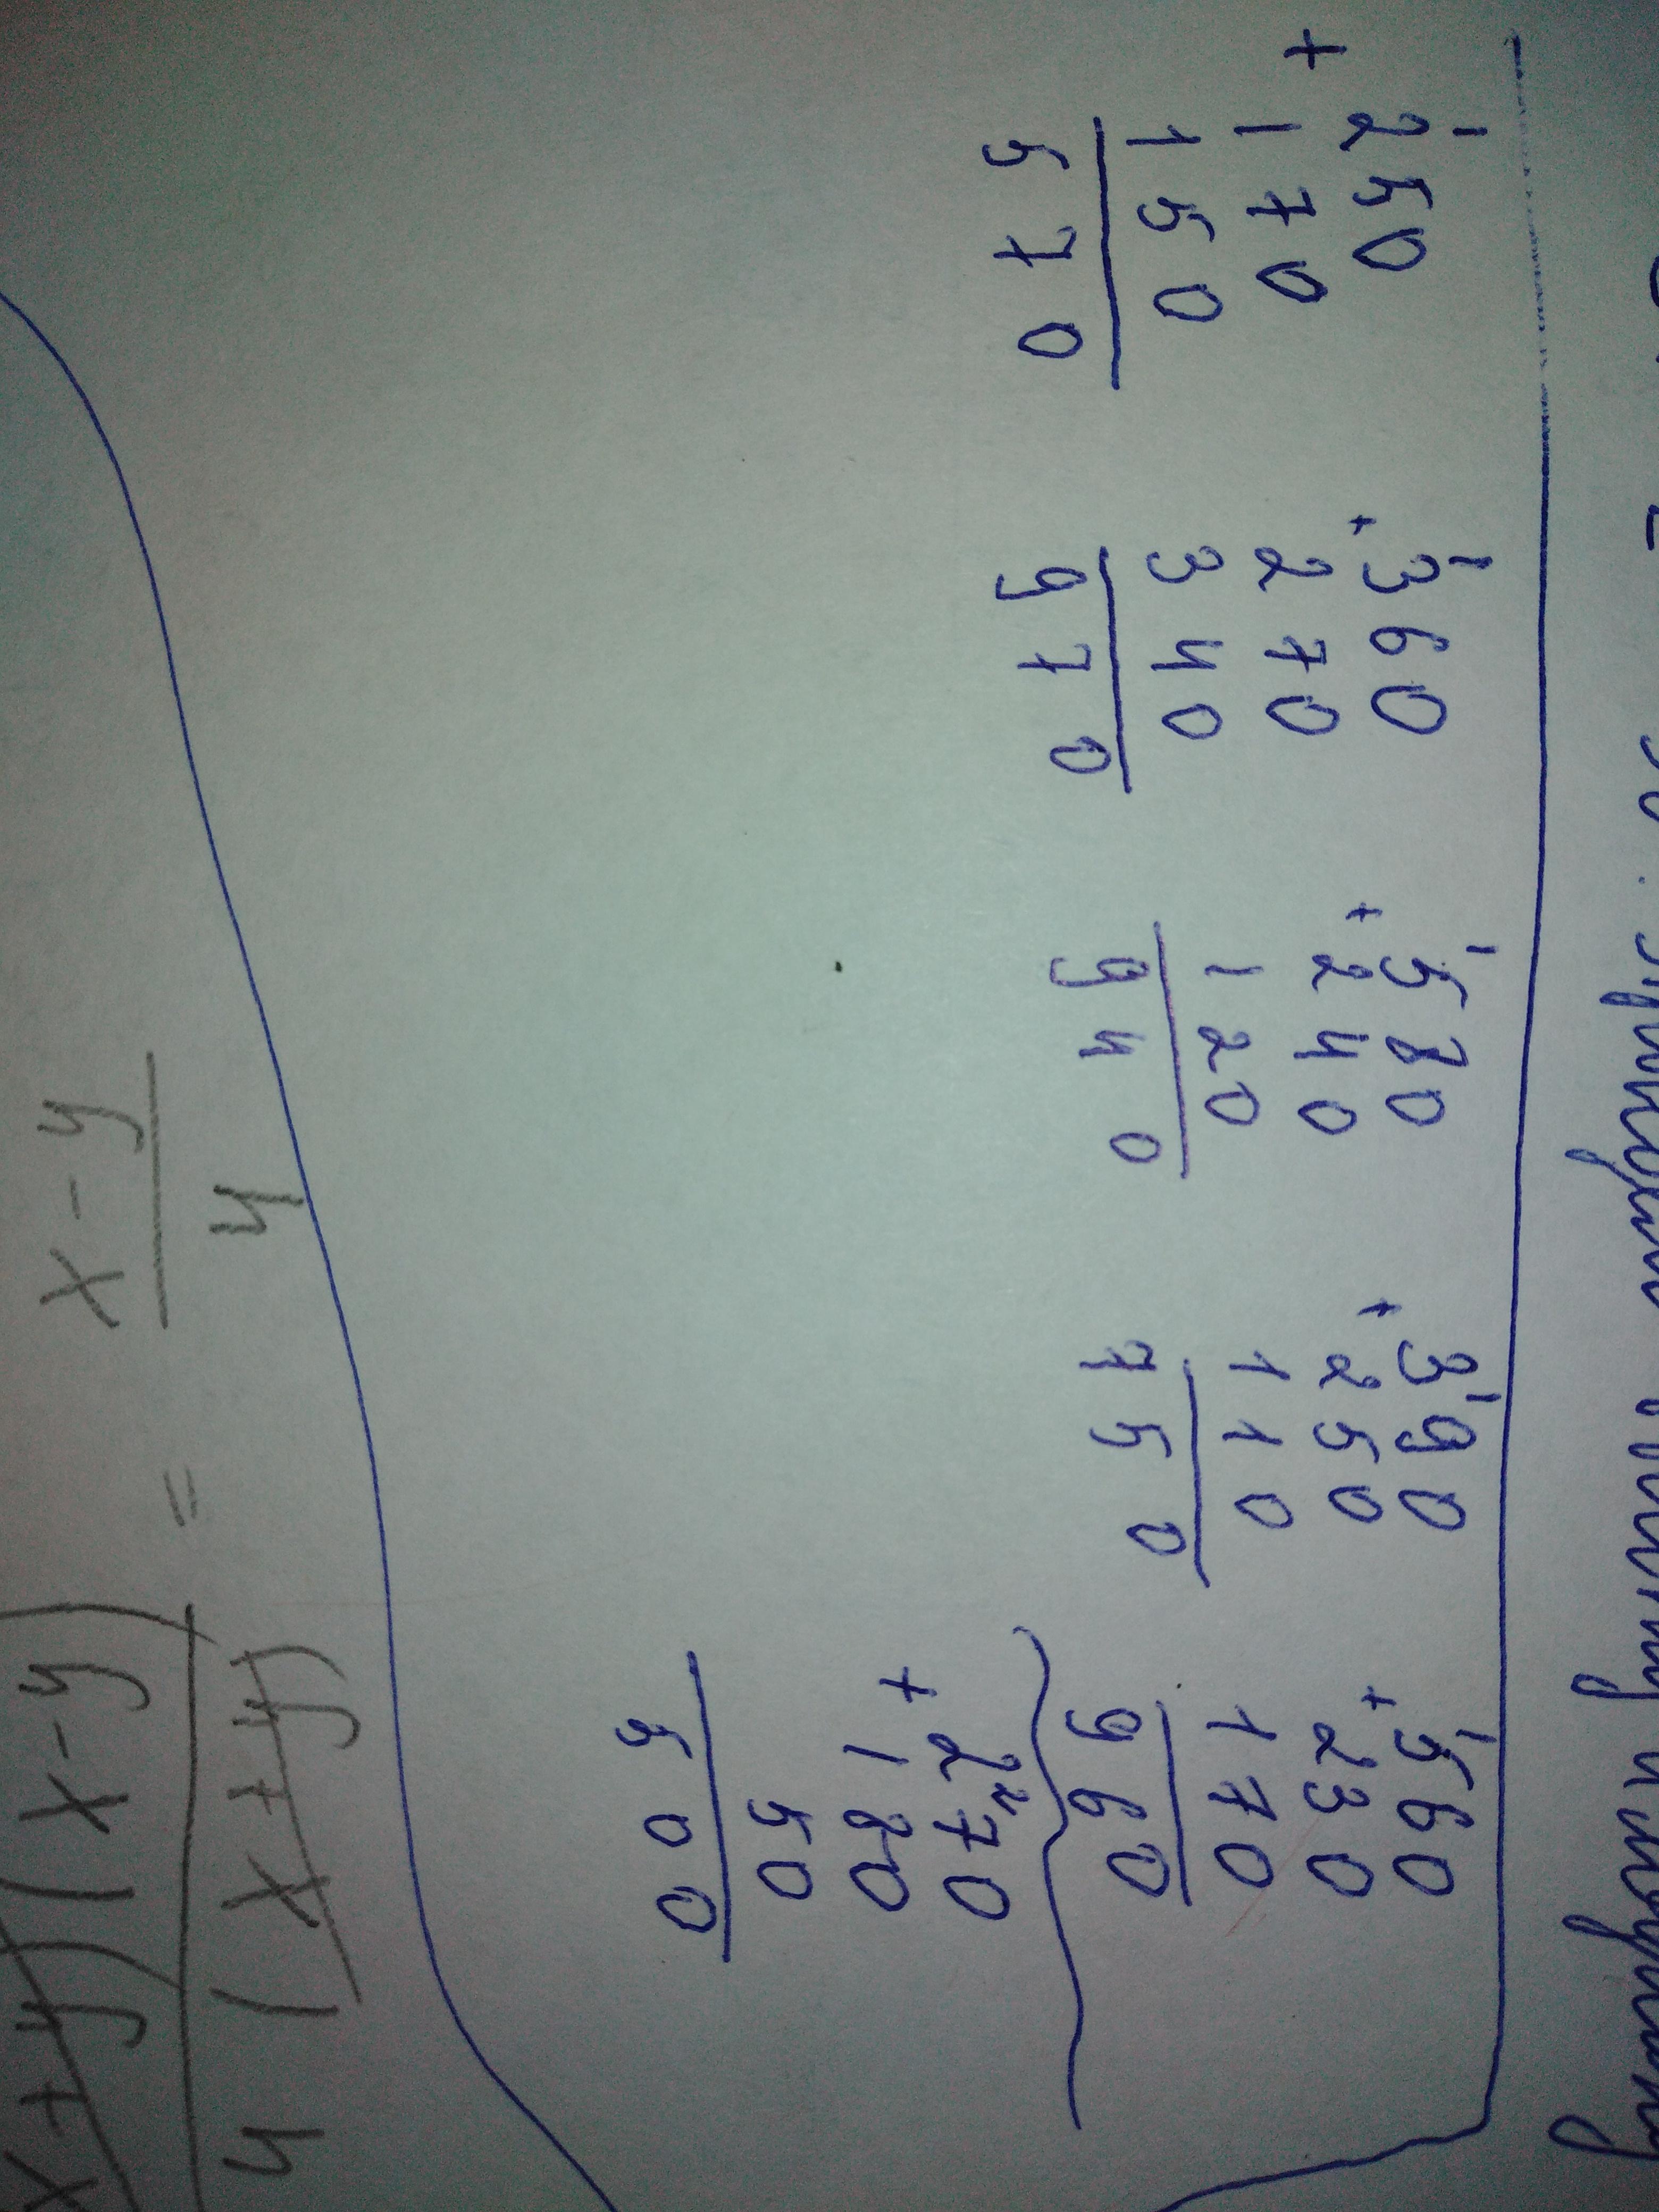 1 1 1 1 1
+ 250 + 360 + 580 + 390 + 560
170 270 240 250 230
150 340 120 110 170
570 970 940 750 960
2
+ 270
180
50
500
x+y)(x-y) = x-y
4(x+y) 4